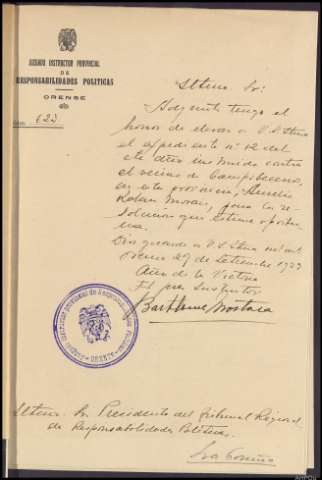 JUZGADO INSTRUCTOR PROVINCIAL
DE
RESPONSABILIDADES POLITICAS
ORENSE
Núm. 623
Iltmo Sr:
Adjunto tengo el
honor de elevar a V.S. Iltma
el expediente nº 12 del
cte año instruido contra
el vecino de
en esta provincia, Aurelio
Rolan para la re-
solucion que estime oportu-
na.
Dios guarde a V.S. Iltma
Orense 29 de Setiembre 1939
Año de la Victoria
El Juez Instructor
Bartolome Mostaza
Iltmo. Sr Presidente del Tribunal Regional
de Responsabilidades Politicas.
La Coruña